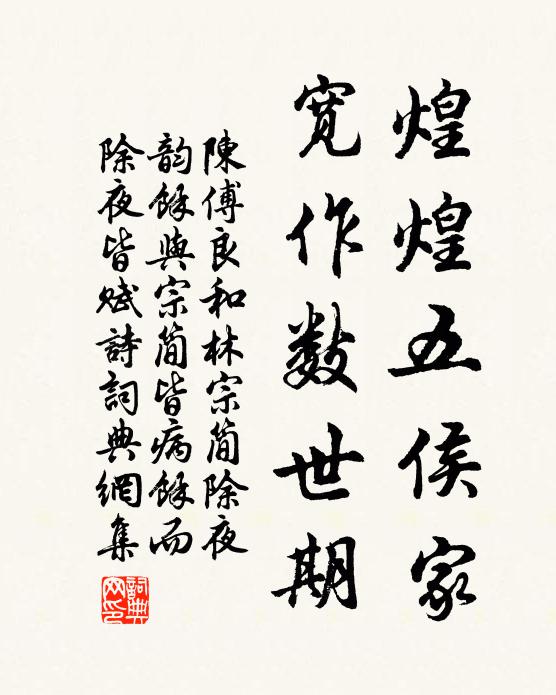 煌煌五侯家
寛作数世期
陳傅良和林宗簡除夜
韵餘與宗簡皆病餘而
除夜皆賦詩詞典網集
詞典